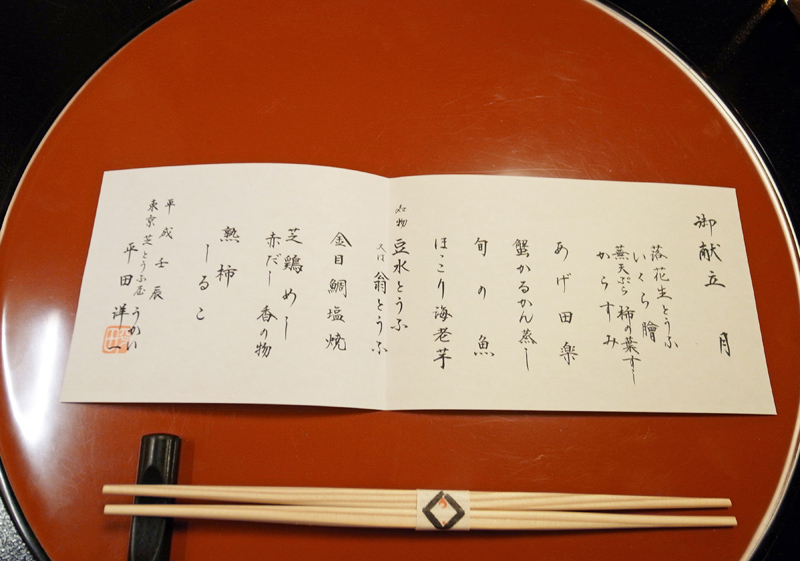 御献立 月
落花生とうふ
いくら膾
蕪天ぷら 柿の葉すし
からすみ
あげ田楽
蟹かるかん蒸し
旬の魚
ほっこり海老芋
名物 豆水とうふ
又は 翁とうふ
金目鯛塩焼
芝鶏めし
赤だし 香の物
熟柿
しるこ
平成壬辰
東京芝とうふ屋うかい
平田洋一